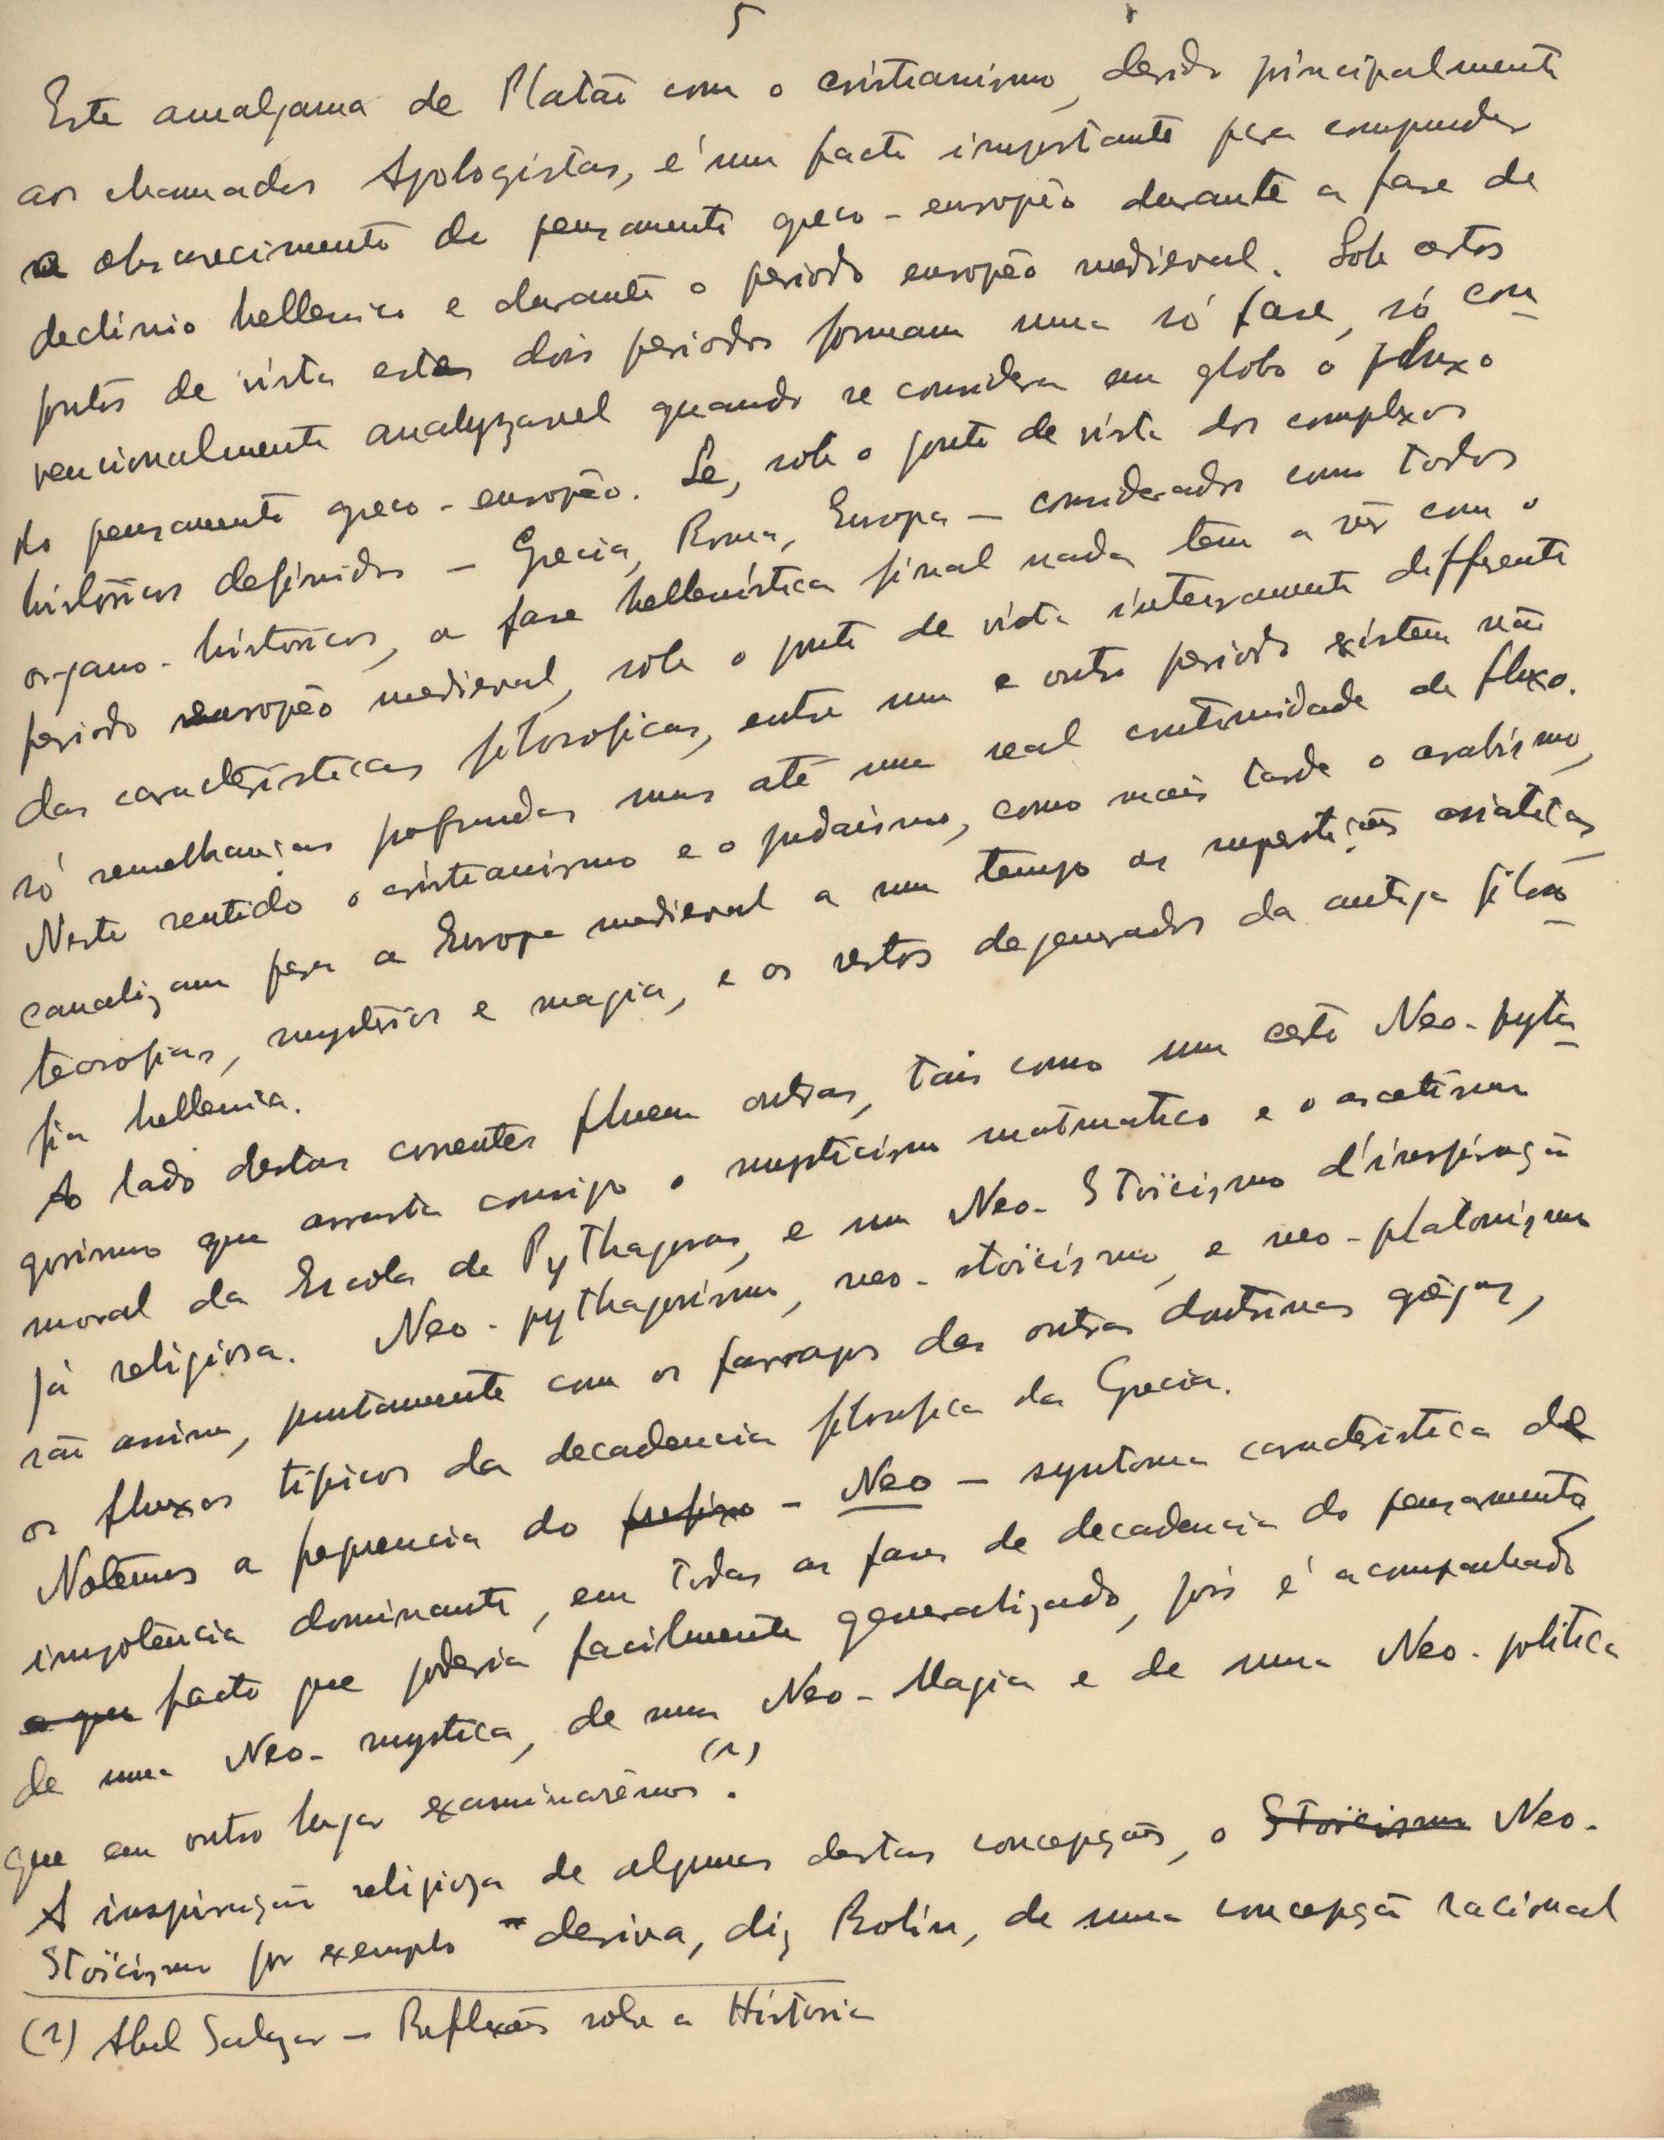 5
Este amalgama de Platão com o cristianismo, devido principalmente
aos chamados Apologistas, é um facto importante para comprender
o obscurecimento do pensamento greco-européo durante a fase de
declinio hellenico e durante o periodo européo medieval. Sob certos
pontos de vista estes dois periodos formam uma só fase, só con-
vencionalmente analyzavel quando se considera em globo o fluxo
do pensamento greco-européo. Se, sob o ponto de vista dos complexos
históricos definidos — Grecia, Roma, Europa — considerados como todos
organo-históricos, a fase hellenística final nada tem a vêr com o
periodo européo medieval, sob o ponto de vista inteiramente differente
das caracteristicas filosoficas, entre um e outro periodo existem não
só semelhanças profundas mas até uma real continuidade de fluxo.
Neste sentido o cristianismo e o judaismo, como mais tarde o arabismo,
canalizam para a Europa medieval a um tempo as superstições asiaticas,
teosofias, mystérios e magia, e os restos degenerados da antiga filoso-
fia hellenica.
Ao lado destas correntes fluem outras, tais como um certo Neo-pyta-
gorismo que arrasta consigo o mysticismo matematico e o ascetismo
moral da Escola de Pythagoras, e um Neo-Stoïcismo d'inspiração
já religiosa. Neo-pythagorismo, neo-stoïcismo, e neo-platonismo
são assim, juntamente com os farrapos das outras doutrinas grêgas,
os fluxos típicos da decadencia filosofica da Grecia.
Notêmos a frequencia do prefixo - Neo — syntoma caracteristica de
impotência dominante, em todas as fases de decadencia do pensamento,
e que facto que poderia facilmente generalizado, pois é acompanhado
de uma Neo-mystica, de uma Neo-Magia e de uma Neo-politica
que em outro lugar examinarêmos (1).
A inspiração religiosa de algumas destas concepções, o Stoïcismo Neo-
Stoïcismo por exemplo "deriva, diz Robin, de uma concepção racional
(1) Abel Salazar — Reflexões sobre a Historia